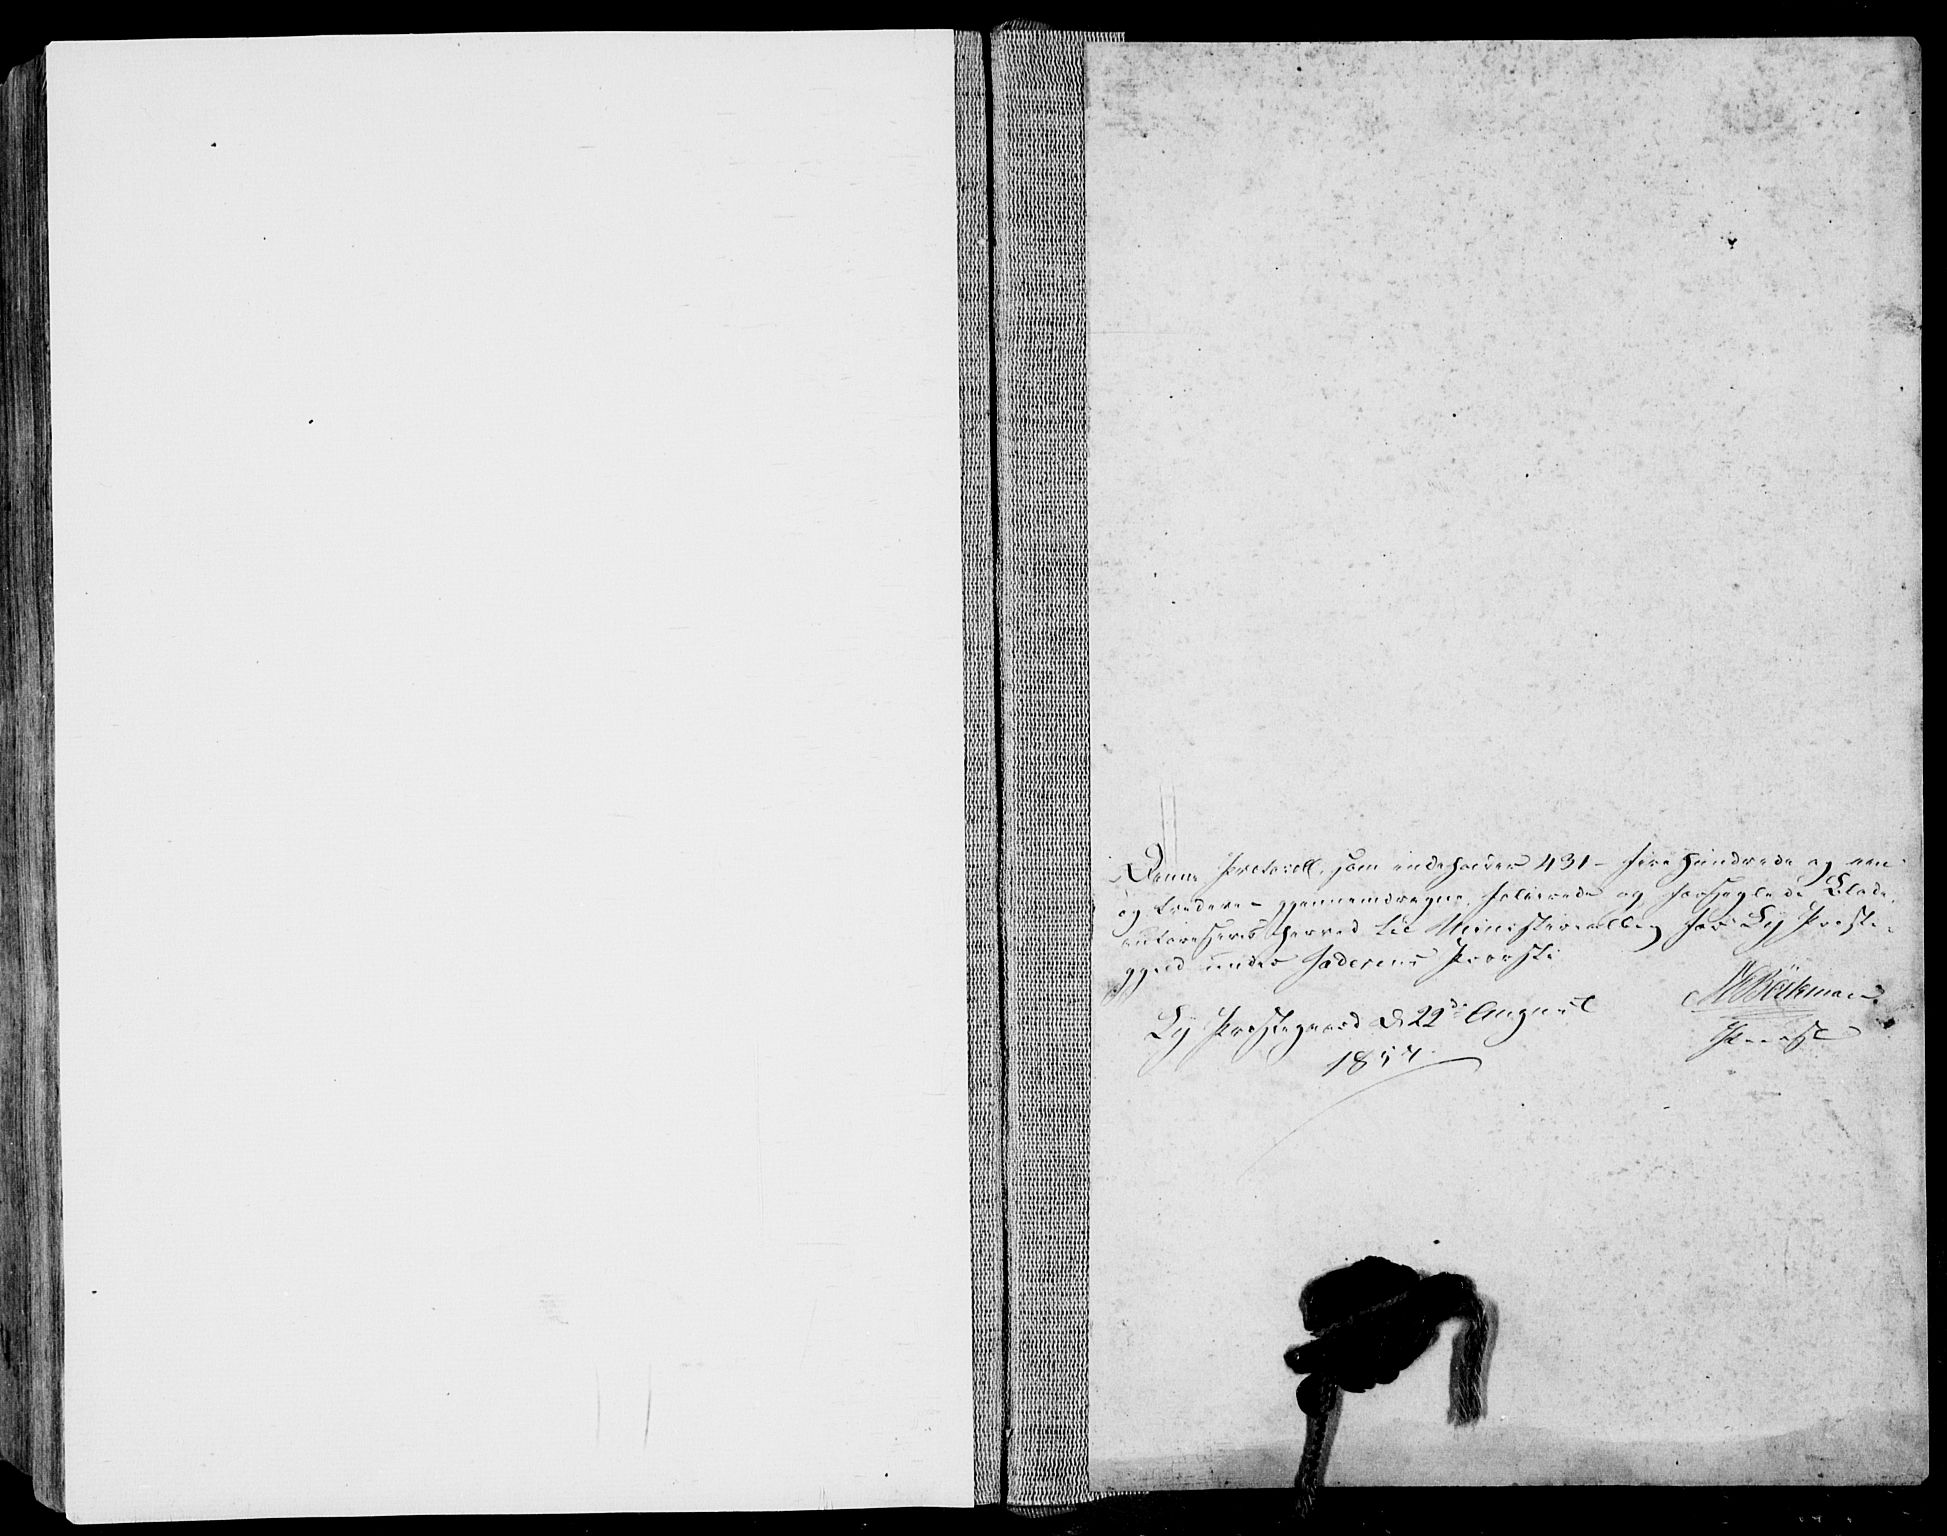 Denne Protocoll, som indeholder 431 - fire Hundrede og een
og tredeve - gjennemdragne, folierede og forseglede Blade,
autoriseres herved til Ministerialbog for Ly Præste-
gjeld under Jæderens Provsti
Ly Præstegaard d. 22de August
1857.
Provst